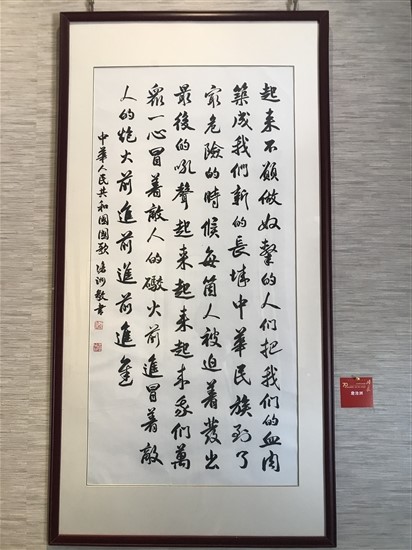 起来不願做奴隸的人们把我们的血肉
築成我们新的長城中華民族到了
冣危險的時候每箇人被迫着發出
最後的吼聲起来起来起来我们萬
眾一心冒着敵人的礮火前進冒着敵
人的炮火前進前進前進進
中華人民共和國國歌 敬書
70